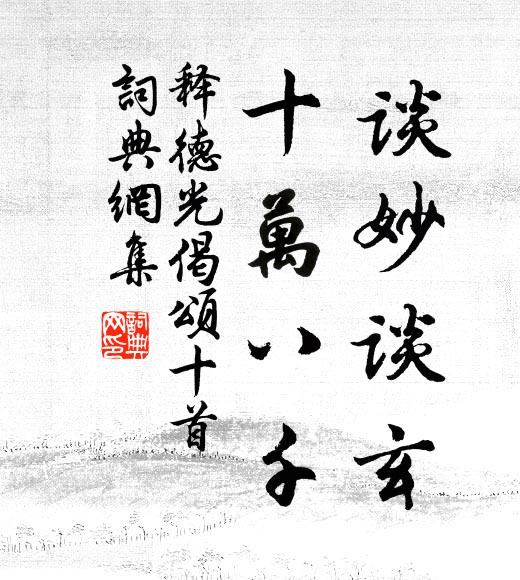 谈妙谈玄
十萬八千
释德光偈頌十首
詞典網集
詞典網印